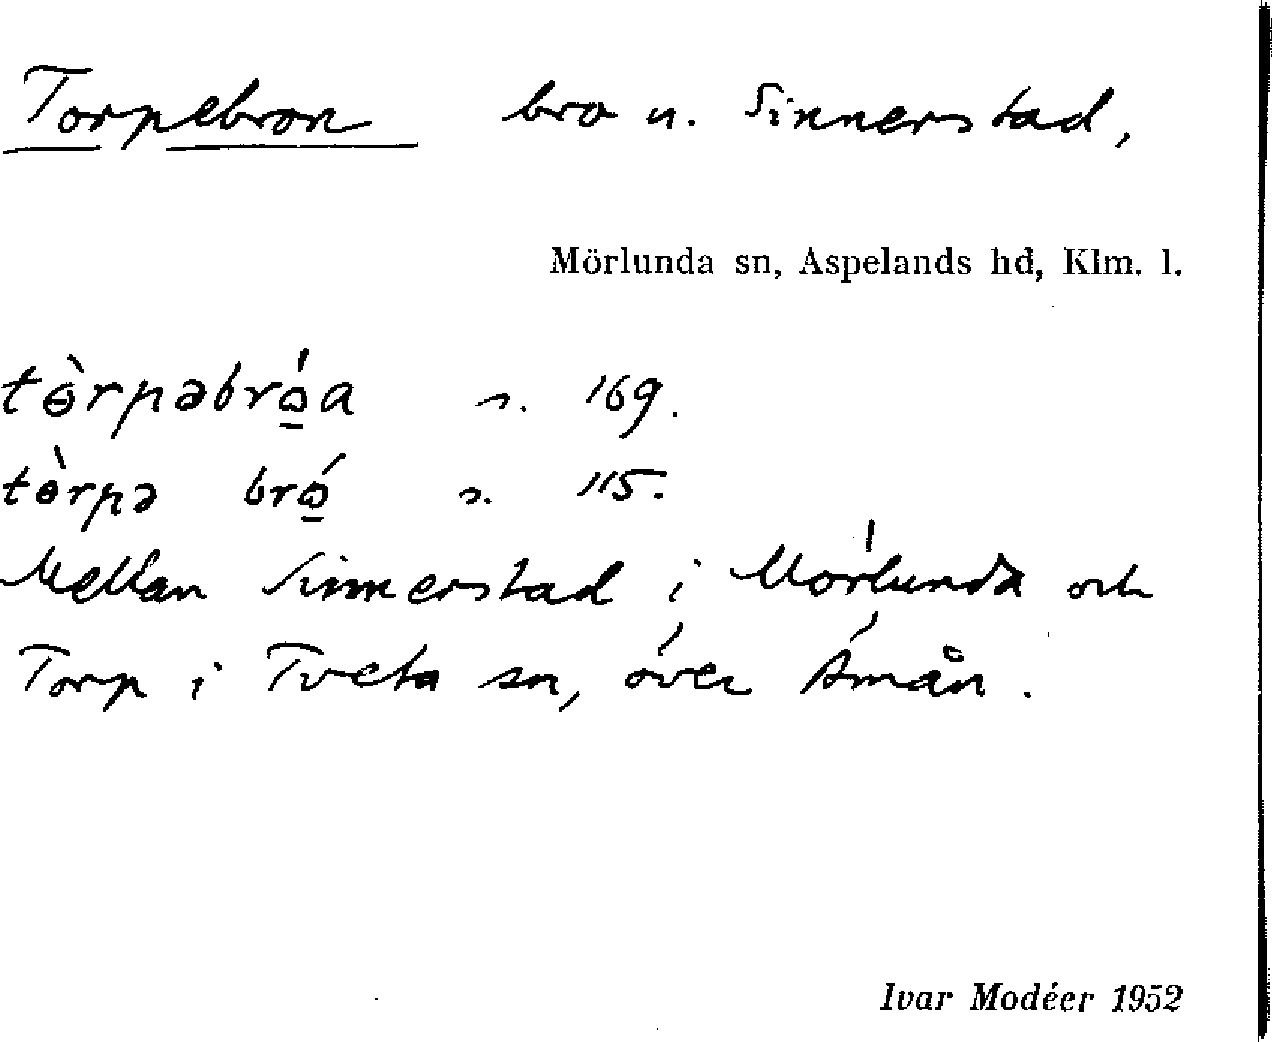 Torpebron bro u. Sinnerstad,
Mörlunda sn, Aspelands hd, Klm. l.
tɵ̀rpəbrώ̲a s. 169.
tɵ̀rpə brώ̲ s. 115.
Mellan Sinnerstad i Mörlunda och
Torp i Tveta sn, över Åmån.
Ivar Modéer 1952